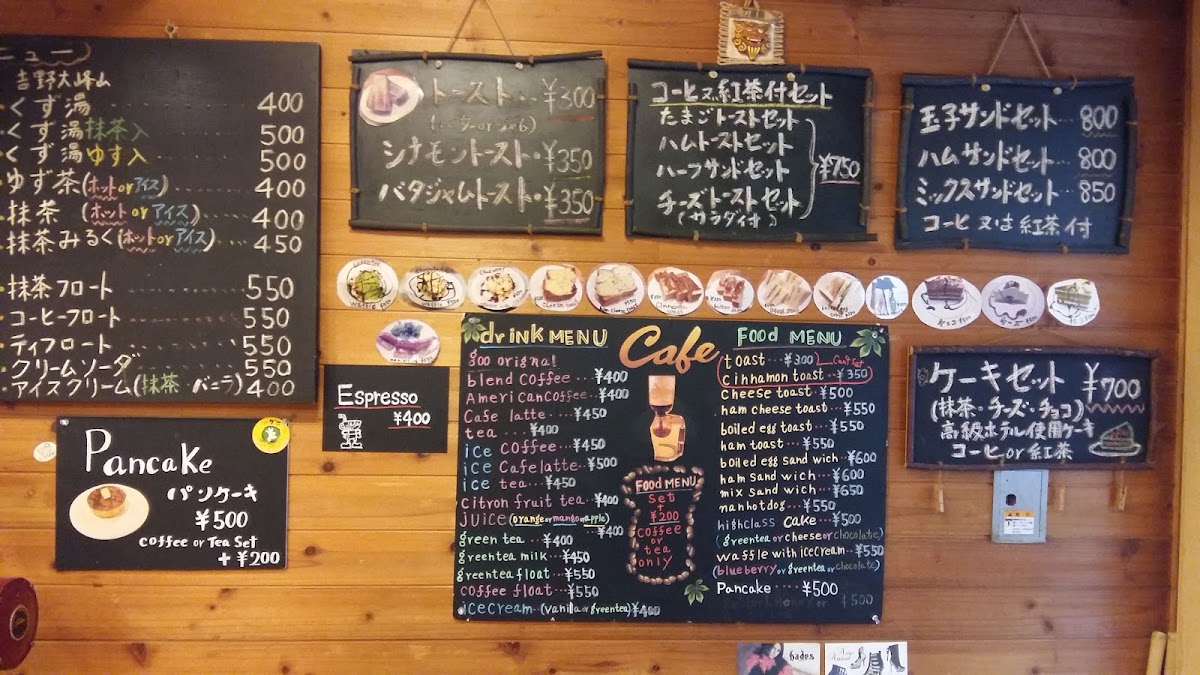 ニュー
吉野大峰山
くず湯 400
くず湯抹茶入 500
くず湯ゆず入 500
ゆず茶(ホットorアイス) 400
抹茶 (ホットorアイス) 400
抹茶みるく(ホットorアイス) 450
抹茶フロート 550
コーヒーフロート 550
ティフロート 550
クリームソーダ 550
アイスクリーム(抹茶 バニラ) 400
トースト ¥300
(バターorジャム)
シナモントースト ¥350
バタジャムトースト ¥350
コーヒ又紅茶付セット
たまごトーストセット
ハムトーストセット
ハーフサンドセット
チーズトーストセット
(サラダ付)
¥750
玉子サンドセット 800
ハムサンドセット 800
ミックスサンドセット 850
コーヒ又は紅茶付
Pancake
パンケーキ
¥500
coffee or Tea Set
+¥200
Espresso
¥400
drink MENU
goo original
blend coffee ¥400
American coffee ¥400
Cafe latte ¥450
tea ¥400
ice coffee ¥450
ice Cafelatte ¥500
ice tea ¥450
citron fruit tea ¥400
juice (orange or mango or apple) ¥400
green tea ¥400
greentea milk ¥450
greentea float ¥550
coffee float ¥550
icecream (vanilla or greentea) ¥400
Cafe
FOOD MENU
set
+
¥200
coffee
or
tea
only
Food MENU
toast ¥300
Can't Set
cinnamon toast ¥350
cheese toast ¥500
ham cheese toast ¥550
boiled egg toast ¥550
ham toast ¥550
boiled egg sand wich ¥600
ham sand wich ¥600
mix sand wich ¥650
nanhotdog ¥550
highclass cake ¥500
(greentea or cheese or chocolate)
waffle with icecream ¥550
(blueberry or greentea or chocolate)
Pancake ¥500
¥500
ケーキセット ¥700
(抹茶・チーズ・チョコ)
高級ホテル使用ケーキ
コーヒor紅茶
hades